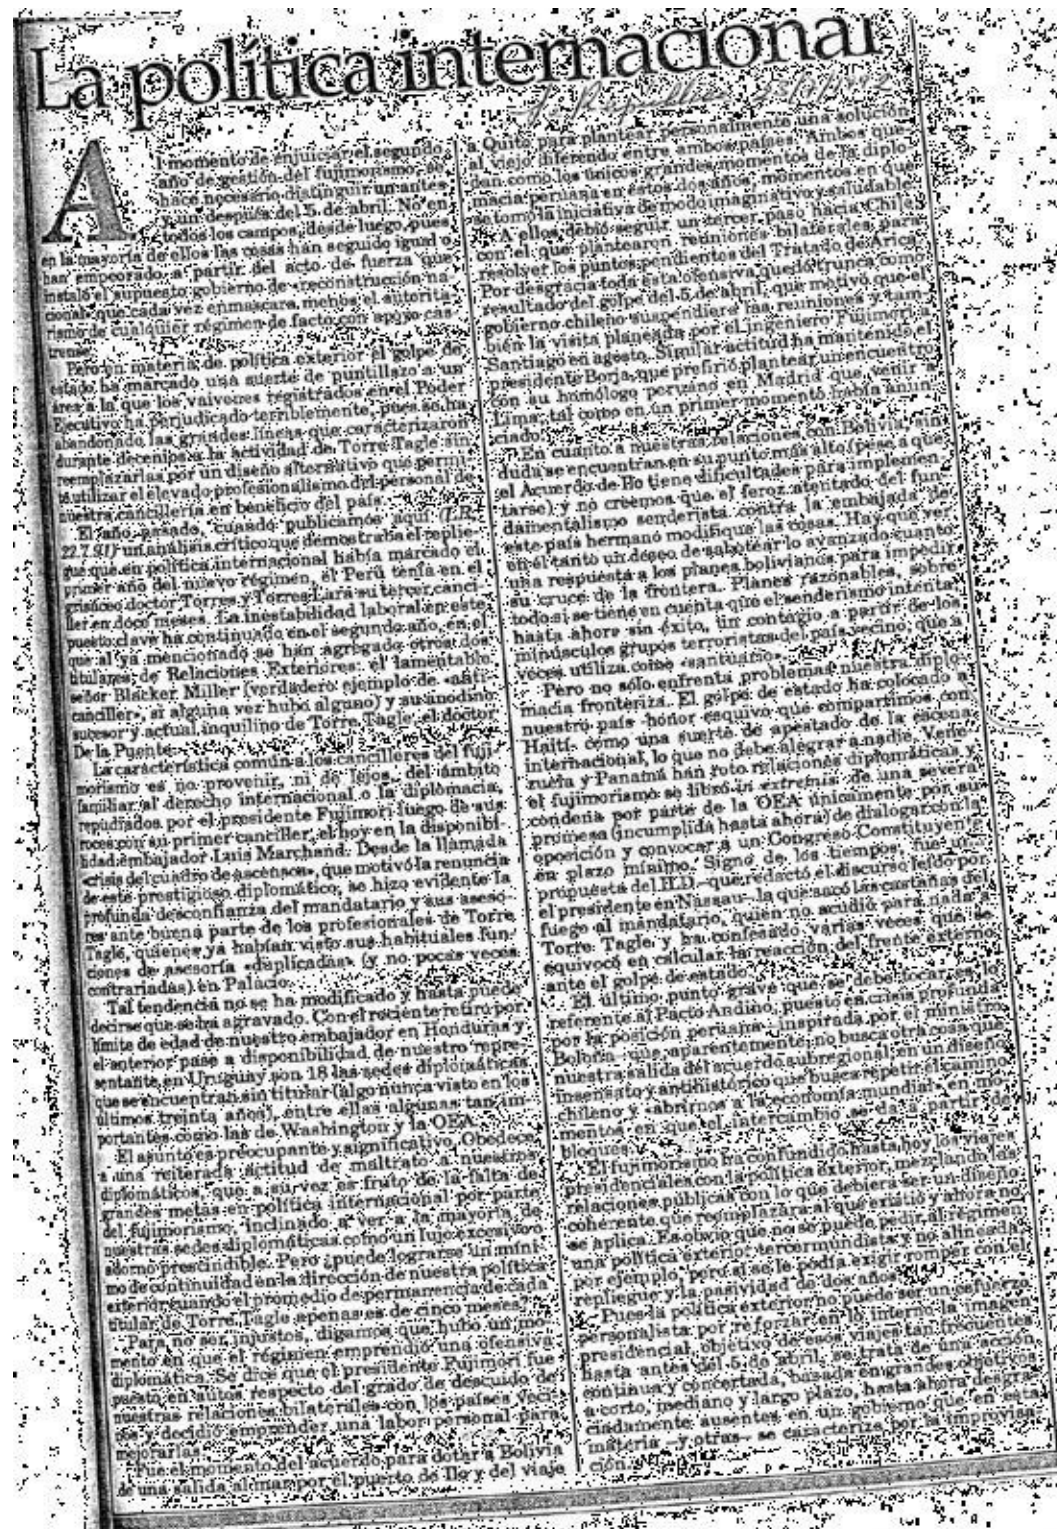 La política internacional
La República 23/7/1992
Al momento de enjuiciar el segundo
año de gestión del fujimorismo, se
hace necesario distinguir un antes
y un después del 5 de abril. No en
todos los campos, desde luego, pues
en la mayoría de ellos las cosas han seguido igual o
han empeorado a partir del acto de fuerza que
instaló el supuesto gobierno de «reconstrucción na-
cional» que cada vez enmascara menos el autorita-
rismo de cualquier régimen de facto con apoyo cas-
trense.
Pero en materia de política exterior el golpe de
estado ha marcado una suerte de puntillazo a un
área a la que los vaivenes registrados en el Poder
Ejecutivo ha perjudicado terriblemente, pues se ha
abandonado las grandes líneas que caracterizaron
durante decenios a la actividad de Torre Tagle sin
reemplazarlas por un diseño alternativo que permi-
ta utilizar el elevado profesionalismo del personal de
nuestra cancillería en beneficio del país.
El año pasado, cuando publicamos aquí (LR,
22.7.91) un análisis crítico que demostraba el replie-
gue que en política internacional había marcado el
primer año del nuevo régimen, el Perú tenía en el
grisáceo doctor Torres y Torres Lara su tercer canci-
ller en doce meses. La inestabilidad laboral en este
puesto clave ha continuado en el segundo año, en el
que al ya mencionado se han agregado otros dos
titulares de Relaciones Exteriores: el lamentable
señor Blacker Miller (verdadero ejemplo de «anti-
canciller», si alguna vez hubo alguno) y su anodino
sucesor y actual inquilino de Torre Tagle, el doctor
De la Puente.
La característica común a los cancilleres del fuji-
morismo es no provenir, ni de lejos, del ámbito
familiar al derecho internacional o la diplomacia,
repudiados por el presidente Fujimori luego de sus
roces con su primer canciller, el hoy en la disponibi-
lidad embajador Luis Marchand. Desde la llamada
«crisis del cuadro de ascensos», que motivó la renuncia
de este prestigioso diplomático, se hizo evidente la
profunda desconfianza del mandatario y sus aseso-
res ante buena parte de los profesionales de Torre
Tagle, quienes ya habían visto sus habituales fun-
ciones de asesoría «duplicadas» (y no pocas veces
contrariadas) en Palacio.
Tal tendencia no se ha modificado y hasta puede
decirse que se ha agravado. Con el reciente retiro por
límite de edad de nuestro embajador en Honduras y
el anterior pase a disponibilidad de nuestro repre-
sentante en Uruguay son 18 las sedes diplomáticas
que se encuentran sin titular (algo nunca visto en los
últimos treinta años), entre ellas algunas tan im-
portantes como las de Washington y la OEA.
El asunto es preocupante y significativo. Obedece
a una reiterada actitud de maltrato a nuestros
diplomáticos, que a su vez es fruto de la falta de
grandes metas en política internacional por parte
del fujimorismo, inclinado a ver a la mayoría de
nuestras sedes diplomáticas como un lujo excesivo o
adorno prescindible. Pero ¿puede lograrse un míni-
mo de continuidad en la dirección de nuestra política
exterior cuando el promedio de permanencia de cada
titular de Torre Tagle apenas es de cinco meses?
Para no ser injustos, digamos que hubo un mo-
mento en que el régimen emprendió una ofensiva
diplomática. Se dice que el presidente Fujimori fue
puesto en autos respecto del grado de descuido de
nuestras relaciones bilaterales con los países veci-
nos y decidió emprender una labor personal para
mejorarlas.
Fue el momento del acuerdo para dotar a Bolivia
de una salida al mar por el puerto de Ilo y del viaje
a Quito para plantear personalmente una solución
al viejo diferendo entre ambos países. Ambos que-
dan como los únicos grandes momentos de la diplo-
macia peruana en estos dos años, momentos en que
se tomó la iniciativa de modo imaginativo y saludable.
A ellos debió seguir un tercer paso hacia Chile,
con el que plantearon reuniones bilaterales para
resolver los puntos pendientes del Tratado de Arica.
Por desgracia toda esta ofensiva quedó trunca como
resultado del golpe del 5 de abril, que motivó que el
gobierno chileno suspendiera las reuniones y tam-
bién la visita planeada por el ingeniero Fujimori a
Santiago en agosto. Similar actitud ha mantenido el
presidente Borja, que prefirió plantear un encuentro
con su homólogo peruano en Madrid que venir a
Lima, tal como en un primer momento había anun-
ciado.
En cuanto a nuestras relaciones con Bolivia, sin
duda se encuentran en su punto más alto (pese a que
el Acuerdo de Ilo tiene dificultades para implemen-
tarse) y no creemos que el feroz atentado del fun-
damentalismo senderista contra la embajada de
este país hermano modifique las cosas. Hay que ver
en él tanto un deseo de sabotear lo avanzado cuanto
una respuesta a los planes bolivianos para impedir
su cruce de la frontera. Planes razonables, sobre
todo si se tiene en cuenta que el senderismo intenta,
hasta ahora sin éxito, un contagio a partir de los
minúsculos grupos terroristas del país vecino, que a
veces utiliza como «santuario».
Pero no sólo enfrenta problemas nuestra diplo-
macia fronteriza. El golpe de estado ha colocado a
nuestro país -honor esquivo que compartimos con
Haití- como una suerte de apestado de la escena
internacional, lo que no debe alegrar a nadie. Vene-
zuela y Panamá han roto relaciones diplomáticas y
el fujimorismo se libró in extremis de una severa
condena por parte de la OEA únicamente por su
promesa (incumplida hasta ahora) de dialogar con la
oposición y convocar a un Congreso Constituyente
en plazo mínimo. Signo de los tiempos, fue una
propuesta del ILD -que redactó el discurso leído por
el presidente en Nassau- la que sacó las castañas del
fuego al mandatario, quien no acudió para nada a
Torre Tagle y ha confesado varias veces que se
equivocó en calcular la reacción del frente externo
ante el golpe de estado.
El último punto grave que se debe tocar es lo
referente al Pacto Andino, puesto en crisis profunda
por la posición peruana -inspirada por el ministro
Boloña- que aparentemente no busca otra cosa que
nuestra salida del acuerdo subregional, en un diseño
insensato y antihistórico que busca repetir el camino
chileno y «abrirnos a la economía mundial» en mo-
mentos en que el intercambio se da a partir de
bloques.
El fujimorismo ha confundido hasta hoy los viajes
presidenciales con la política exterior, mezclando las
relaciones públicas con lo que debiera ser un diseño
coherente que reemplazara al que existió y ahora no
se aplica. Es obvio que no se puede pedir al régimen
una política exterior tercermundista y no alineada,
por ejemplo, pero sí se le podía exigir romper con el
repliegue y la pasividad de dos años.
Pues la política exterior no puede ser un esfuerzo
personalista por reforzar en lo interno la imagen
presidencial, objetivo de esos viajes tan frecuentes
hasta antes del 5 de abril; se trata de una acción
continua y concertada, basada en grandes objetivos
a corto, mediano y largo plazo, hasta ahora desgra-
ciadamente ausentes en un gobierno que en esta
materia -y otras- se caracteriza por la improvisa-
ción.